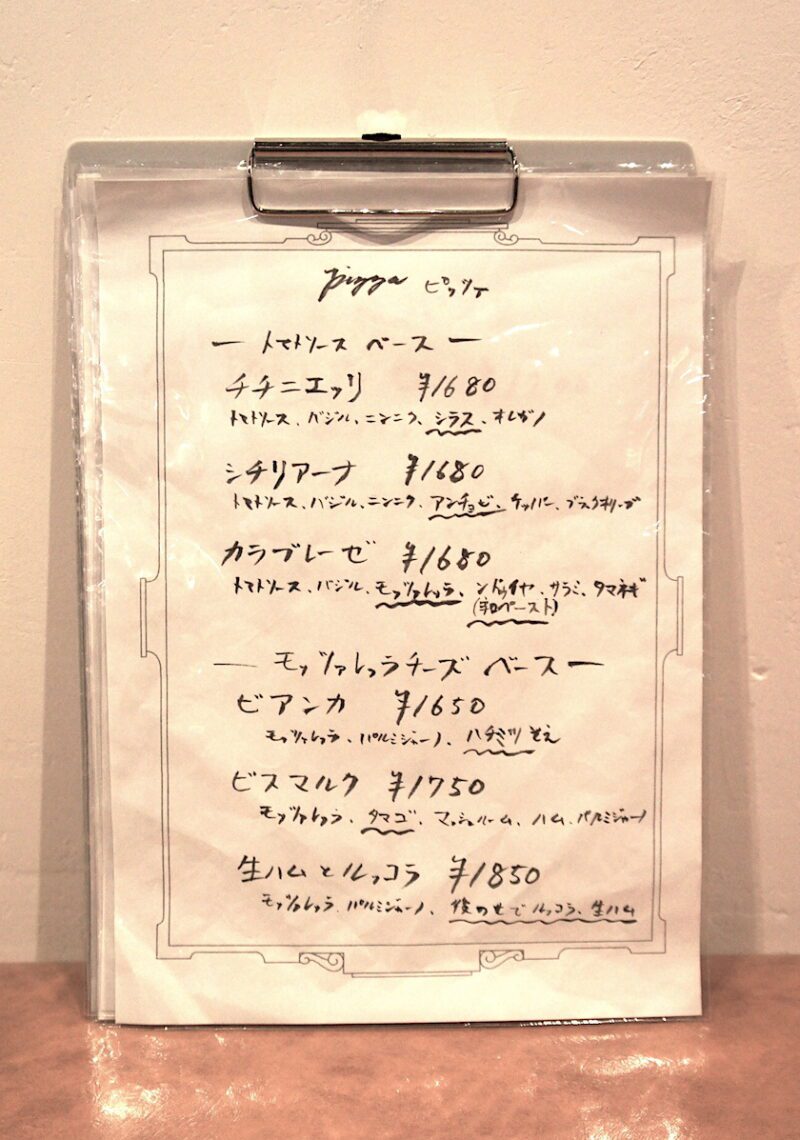 pizza ピッツァ
ー トマトソース ベース ー
チチニエッリ ¥1680
トマトソース、バジル、ニンニク、シラス、オレガノ
シチリアーナ ¥1680
トマトソース、バジル、ニンニク、アンチョビ、ケッパー、ブラックオリーブ
カラブレーゼ ¥1680
トマトソース、バジル、モッツァレッラ、ンドゥイヤ、サラミ、タマネギ
ペースト)
ー モッツァレッラチーズ ベース ー
ビアンカ ¥1650
モッツァレッラ、パルミジャーノ、ハチミツそえ
ビスマルク ¥1750
モッツァレッラ、タマゴ、マッシュルーム、ハム、パルミジャーノ
生ハムとルッコラ ¥1850
モッツァレッラ、パルミジャーノ、後のせでルッコラ、生ハム